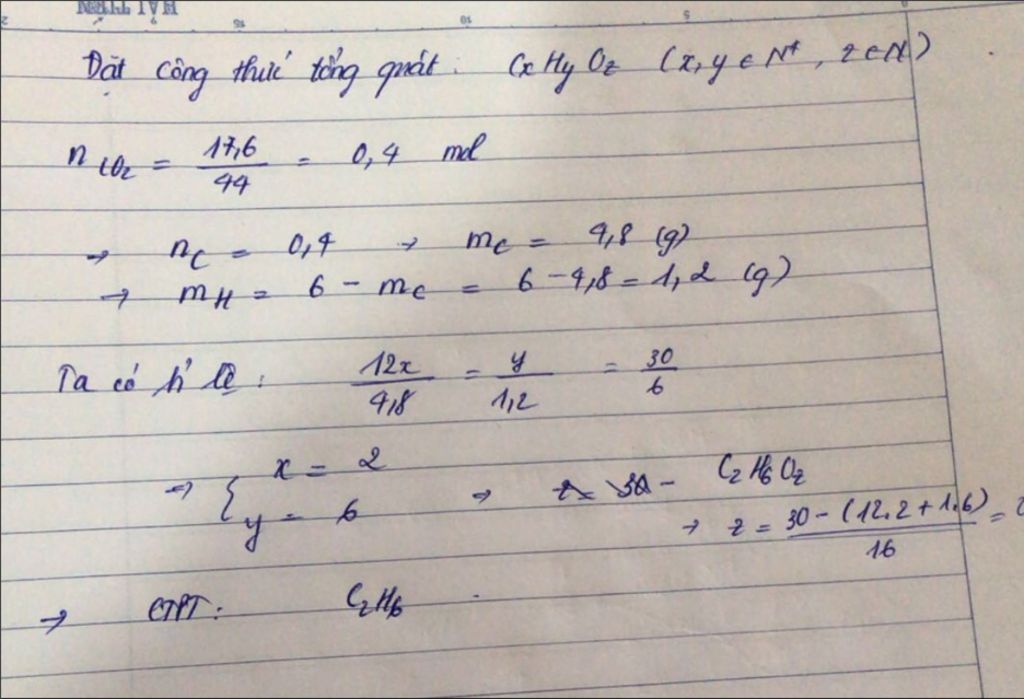 Đặt công thức tổng quát: CxHyOz (x, y ∈ N*, z ∈ N)
nCO2 = 17,6/44 = 0,4 mol
→ nC = 0,4 → mC = 4,8 (g)
→ mH = 6 - mC = 6 - 4,8 = 1,2 (g)
Ta có tỉ lệ: 12x/4,8 = y/1,2 = 30/6
⇒ { x = 2
y = 6 ⇒ C2H6Oz
→ z = 30 - (12.2 + 1.6)/16 =
→ CTPT: C2H6